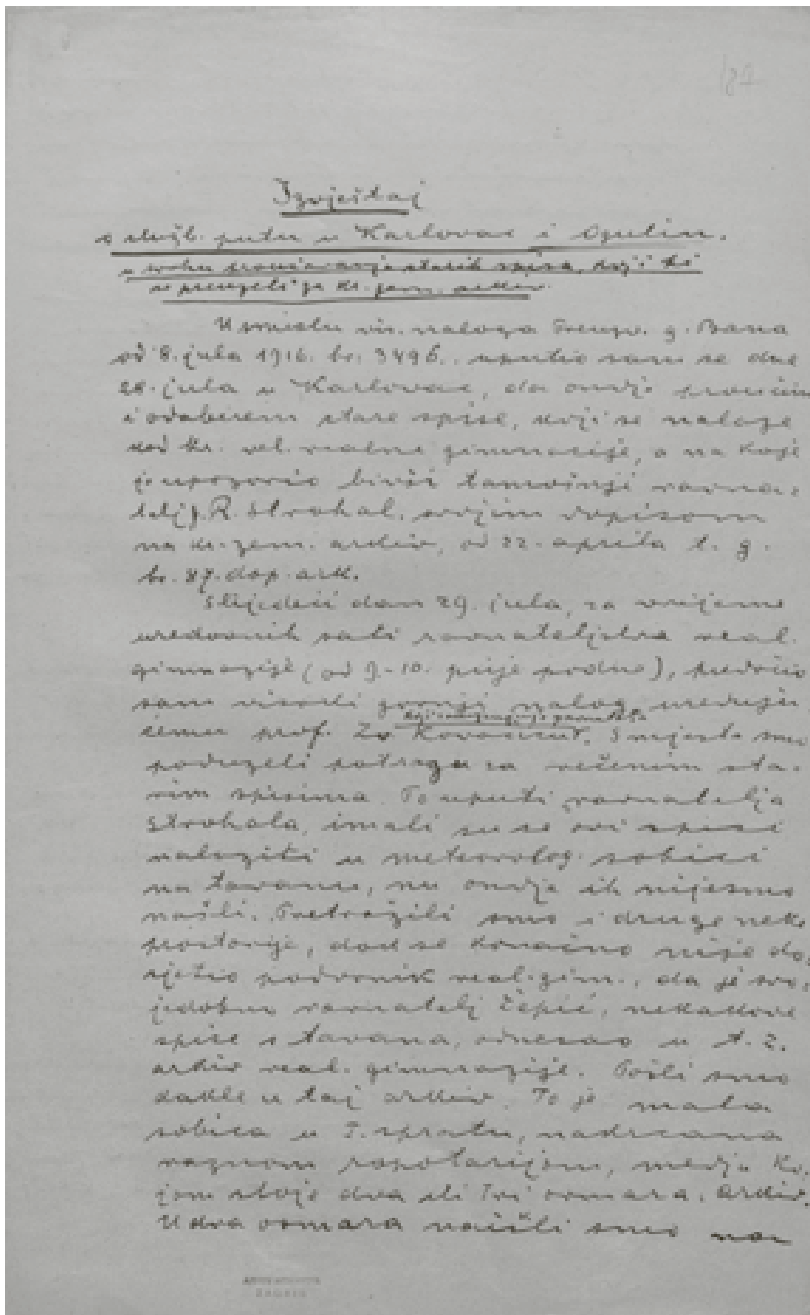 187
Izvještaj
o služb. putu u Karlovac i Ogulin,
u svrhu proučavanja starih spisa, koji bi
se preuzeli za kr. zem. arkiv.
U smislu vis. naloga Preuzv. g. Bana
od 8. jula 1916. br. 3496. uputio sam se dne
28. jula u Karlovac, da ondje proučim
i odaberem stare spise, koji se nalaze
kod kr. vel. realne gimnazije, a na koje
je upozorio bivši tamošnji ravna-
telj g. R. Strohal, svojim dopisom
na kr. zem. arkiv, od 22. aprila t. g.
br. 87. dop. ark.
Slijedeći dan 29. jula, za vrijeme
uredovnih sati ravnateljstva real.
gimnazije (od 9-10. prije podne), predočio
sam visoki gornji nalog
prof. Zv. Smjesta smo
poduzeli potragu za rečenim sta-
rim spisima. Po uputi ravnatelja
Strohala, imali su se ovi spisi
nalaziti u meteorolog. sobici
na tavanu, nu ondje ih nijesmo
našli. Pretražili smo i druge neke
prostorije, dok se konačno nije do-
sjetio podvornik real. gim., da je svo-
jedobno ravnatelj Čepić, nekakove
spise s tavana, odnesao u t. z.
arkiv real. gimnazije. Pošli smo
dakle u taj arkiv. To je mala
sobica u I. spratu, natrpana
raznom ropotarijom, medju ko-
jom stoje dva ili tri ormara, arkiv.
U dva ormara naišli smo na